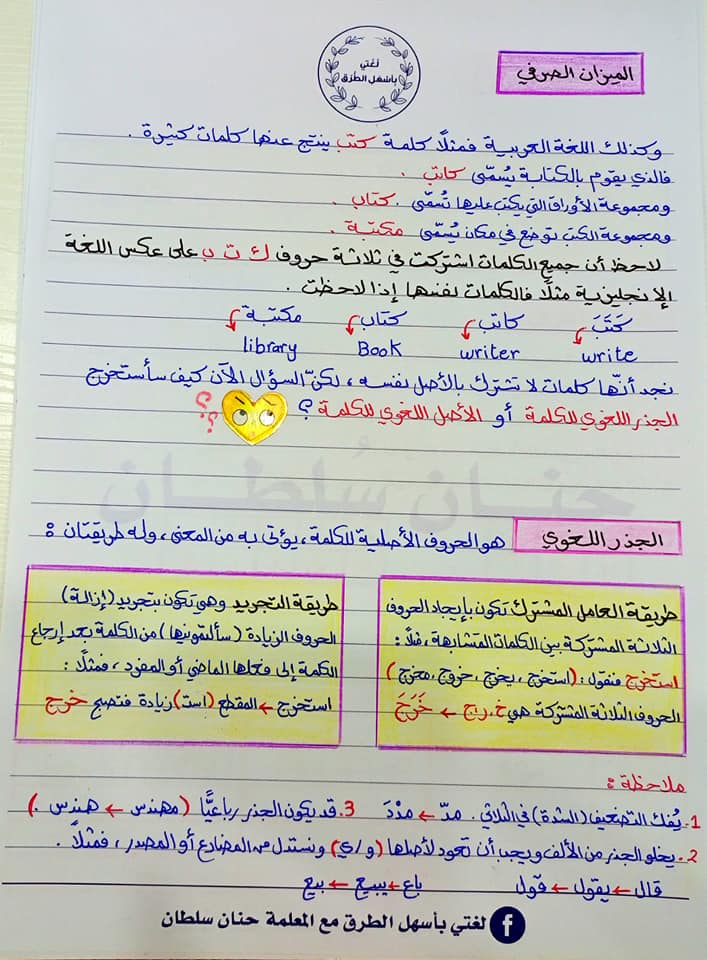 لغتي
بأسهل الطرق
الميزان الصرفي
وكذلك اللغة العربية فمثلًا كلمة كتب ينتج عنها كلمات كثيرة .
فالذي يقوم بالكتابة يُسمّى كاتب .
ومجموعة الأوراق التي يكتب عليها تُسمّى . كتاب .
ومجموعة الكتب توضع في مكان يُسمّى مكتبة .
لاحظ أن جميع الكلمات اشتركت في ثلاثة حروف ك ت ب على عكس اللغة
الإنجليزية مثلًا فالكلمات نفسها إذا لاحظت .
كَتَبَ كاتب كتاب مكتبة
write writer Book library
نجد أنّها كلمات لا تشترك بالأصل نفسه ، لكنّ السؤال الآن كيف سأستخرج
الجذر اللغوي للكلمة أو الأصل اللغوي للكلمة ؟ ؟؟
حنان سُلطان
الجذر اللغوي هو الحروف الأصلية للكلمة ، يؤتى به من المعنى ، وله طريقتان :
طريقة العامل المشترك تكون بإيجاد الحروف
الثلاثة المشتركة بين الكلمات المتشابهة ، مثلًا :
استخرج فنقول : (استخرج ، يخرج ، خروج ، مخرج)
الحروف الثلاثة المشتركة هي خ ، ر ، ج ← خَرَجَ
طريقة التجريد وهي تكون بتجريد (إزالة)
الحروف الزيادة (سألتمونيها) من الكلمة بعد إرجاع
الكلمة إلى فعلها الماضي أو المفرد ، فمثلًا :
استخرج ← المقطع (است) زيادة فتصبح خرج
ملاحظة :
1. يُفك التضعيف (الشدة) في الثلاثي . مدّ ← مدْدَ 3. قد يكون الجذر رباعيًّا (مهندس ← هندس .)
2. يخلو الجذر من الألف ويجب أن تعود لأصلها (و / ي) ونستدل من المضارع أو المصدر ، فمثلًا .
قال ← يقول ← قول باع ← يبيع ← بيع
لغتي بأسهل الطرق مع المعلمة حنان سلطان